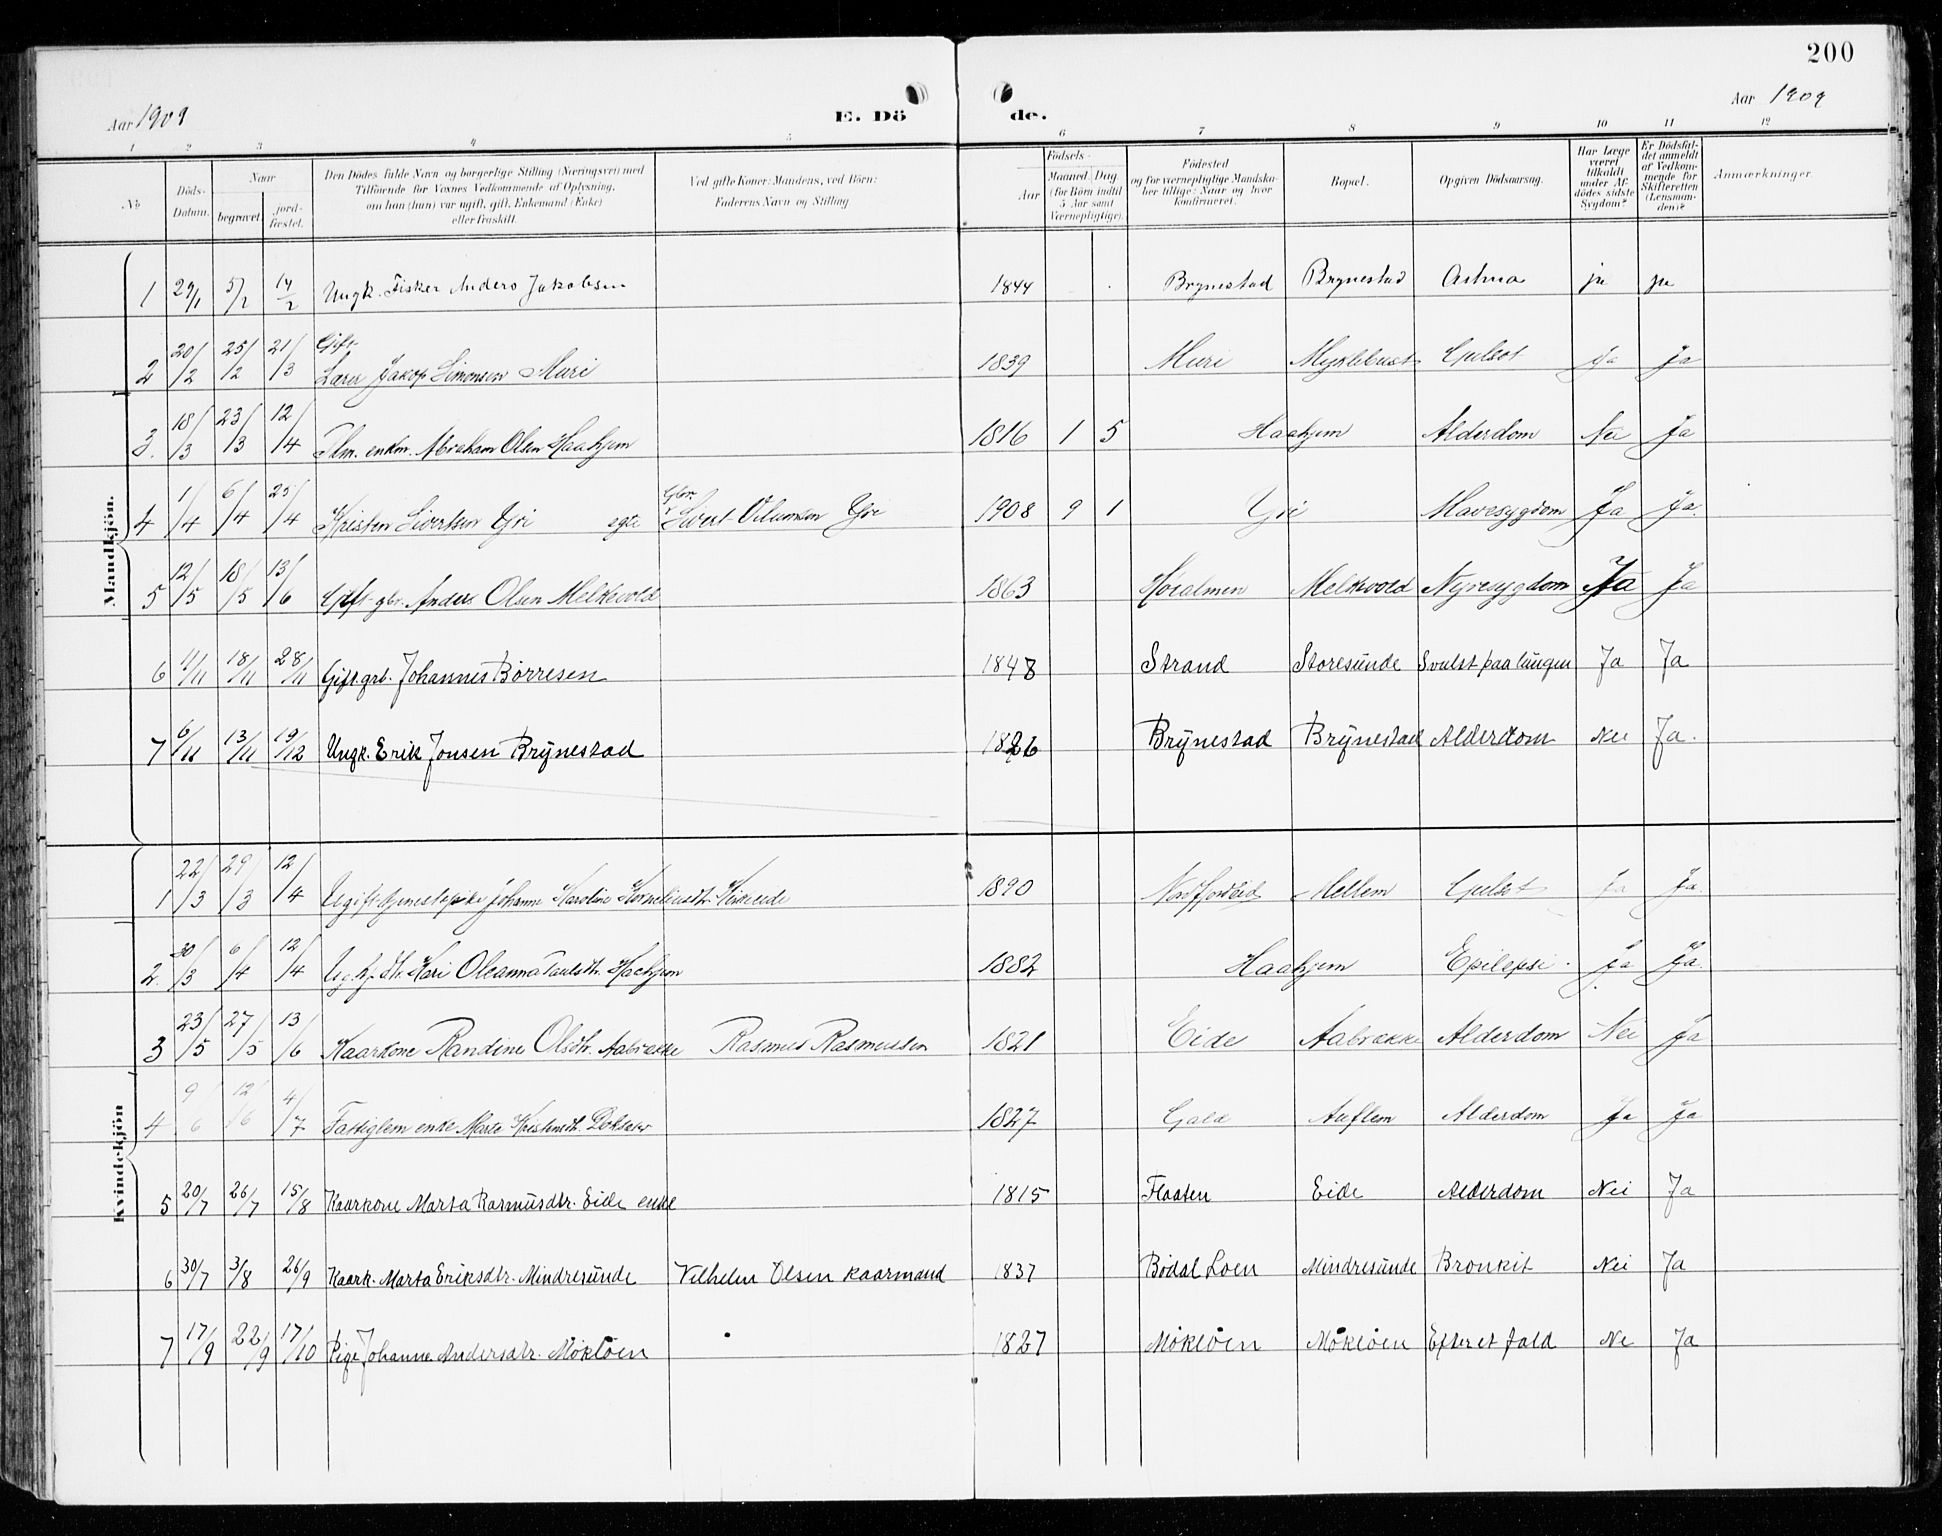 200
Aar 1909 E. Dö de. Aar 1909
1 2 3 4 5 6 7 8 9 10 11 12
No.
Döds-Datum.
Naar
begravet.
jord-fæstet.
Den Dödes fulde Navn og borgerlige Stilling (Næringsvei) med
Tilföiende for Voxnes Vedkommende af Oplysning,
om han (hun) var ugift, gift, Enkemand (Enke)
eller fraskilt.
Ved gifte Koner: Mandens, ved Börn:
Faderens Navn og Stilling
Födsels-
Aar
Maaned. Dag.
(for Börn indtil
5 Aar samt
Værnepligtige).
Födested
og for værnepligtige Mandska-
ber tillige: Naar og hvor
konfirmeret.
Bopæl.
Opgiven Dödsaarsag.
Har Læge
været
tilkaldt
under Af-
dödes sidste
Sygdom?
Er Dödsfal-
det anmeldt
af Vedkom-
mende for
Skifteretten
(Lensman-
den)?
Anmærkninger.
Mandkjön.
1 29/1 5/2 14/2 Ungk. Fisker Anders Jakobsen 1844 Brynestad Brynestad Astma ja ja
2 20/2 25/2 21/3 Gift Lærer Jakop Simonsen Muri 1839 Muri Myklebust Gulsot Ja Ja
3. 18/3 23/3 12/4 Flm. enkm. Abraham Olsen Haahjem 1816 1 5 Haahjem Alderdom Nei Ja
4 1/4 6/4 25/4 Kristen Sivertsen Yri egte Gbr. Sivert Yri 1908 9 1 Yri Mavesygdom Ja Ja.
5 12/5 18/5 13/6 Gift gbr. Anders Olsen Melkevold 1863 Melkevold Nyresygdom Ja Ja
6 11/11 18/11 28/11 Gift. grb. Johannes Börresen 1848 Strand Storesunde Svulst paa lungen Ja Ja
7 6/11 13/11 19/12 Ungk. Erik Jonsen Brynestad 1826 Brynestad Brynestad Alderdom Nei Ja.
Kvindekjön
1 22/3 29/3 12/4 Ugift tjenestepike Johanne Karoline Korneliusdtr. Kirkeeide 1890 Nordfjordeid Mellem Gulsot Ja Ja
2. 30/3 6/4 12/4 Kari Oleanna Paulsdtr. Haahjem 1882 Haahjem Epilepsi. Ja Ja.
3 23/5 27/5 13/6 Kaarkone Randine Olsdtr. Aabrække Rasmus Rasmussen 1821 Eide Aabrække Alderdom Nei Ja
4 9/6 12/6 4/7 Fattiglem enke Marte 1827 Auflem Alderdom Ja Ja
5 20/7 26/7 15/8 Kaarkone Marta Rasmusdtr. Eide enke 1815 Flaaten Eide Alderdom Nei Ja
6 30/7 3/8 26/9 Kaark. Marta Eriksdtr. Mindresunde Vilhelm Olsen kaarmand 1837 Bödal Loen Mindresunde Bronkit Nei Ja
7 17/9 22/9 17/10 Pige Johanne Andersdtr. Mökløen 1827 Mökløen Mökløen Efter et fald Ne Ja